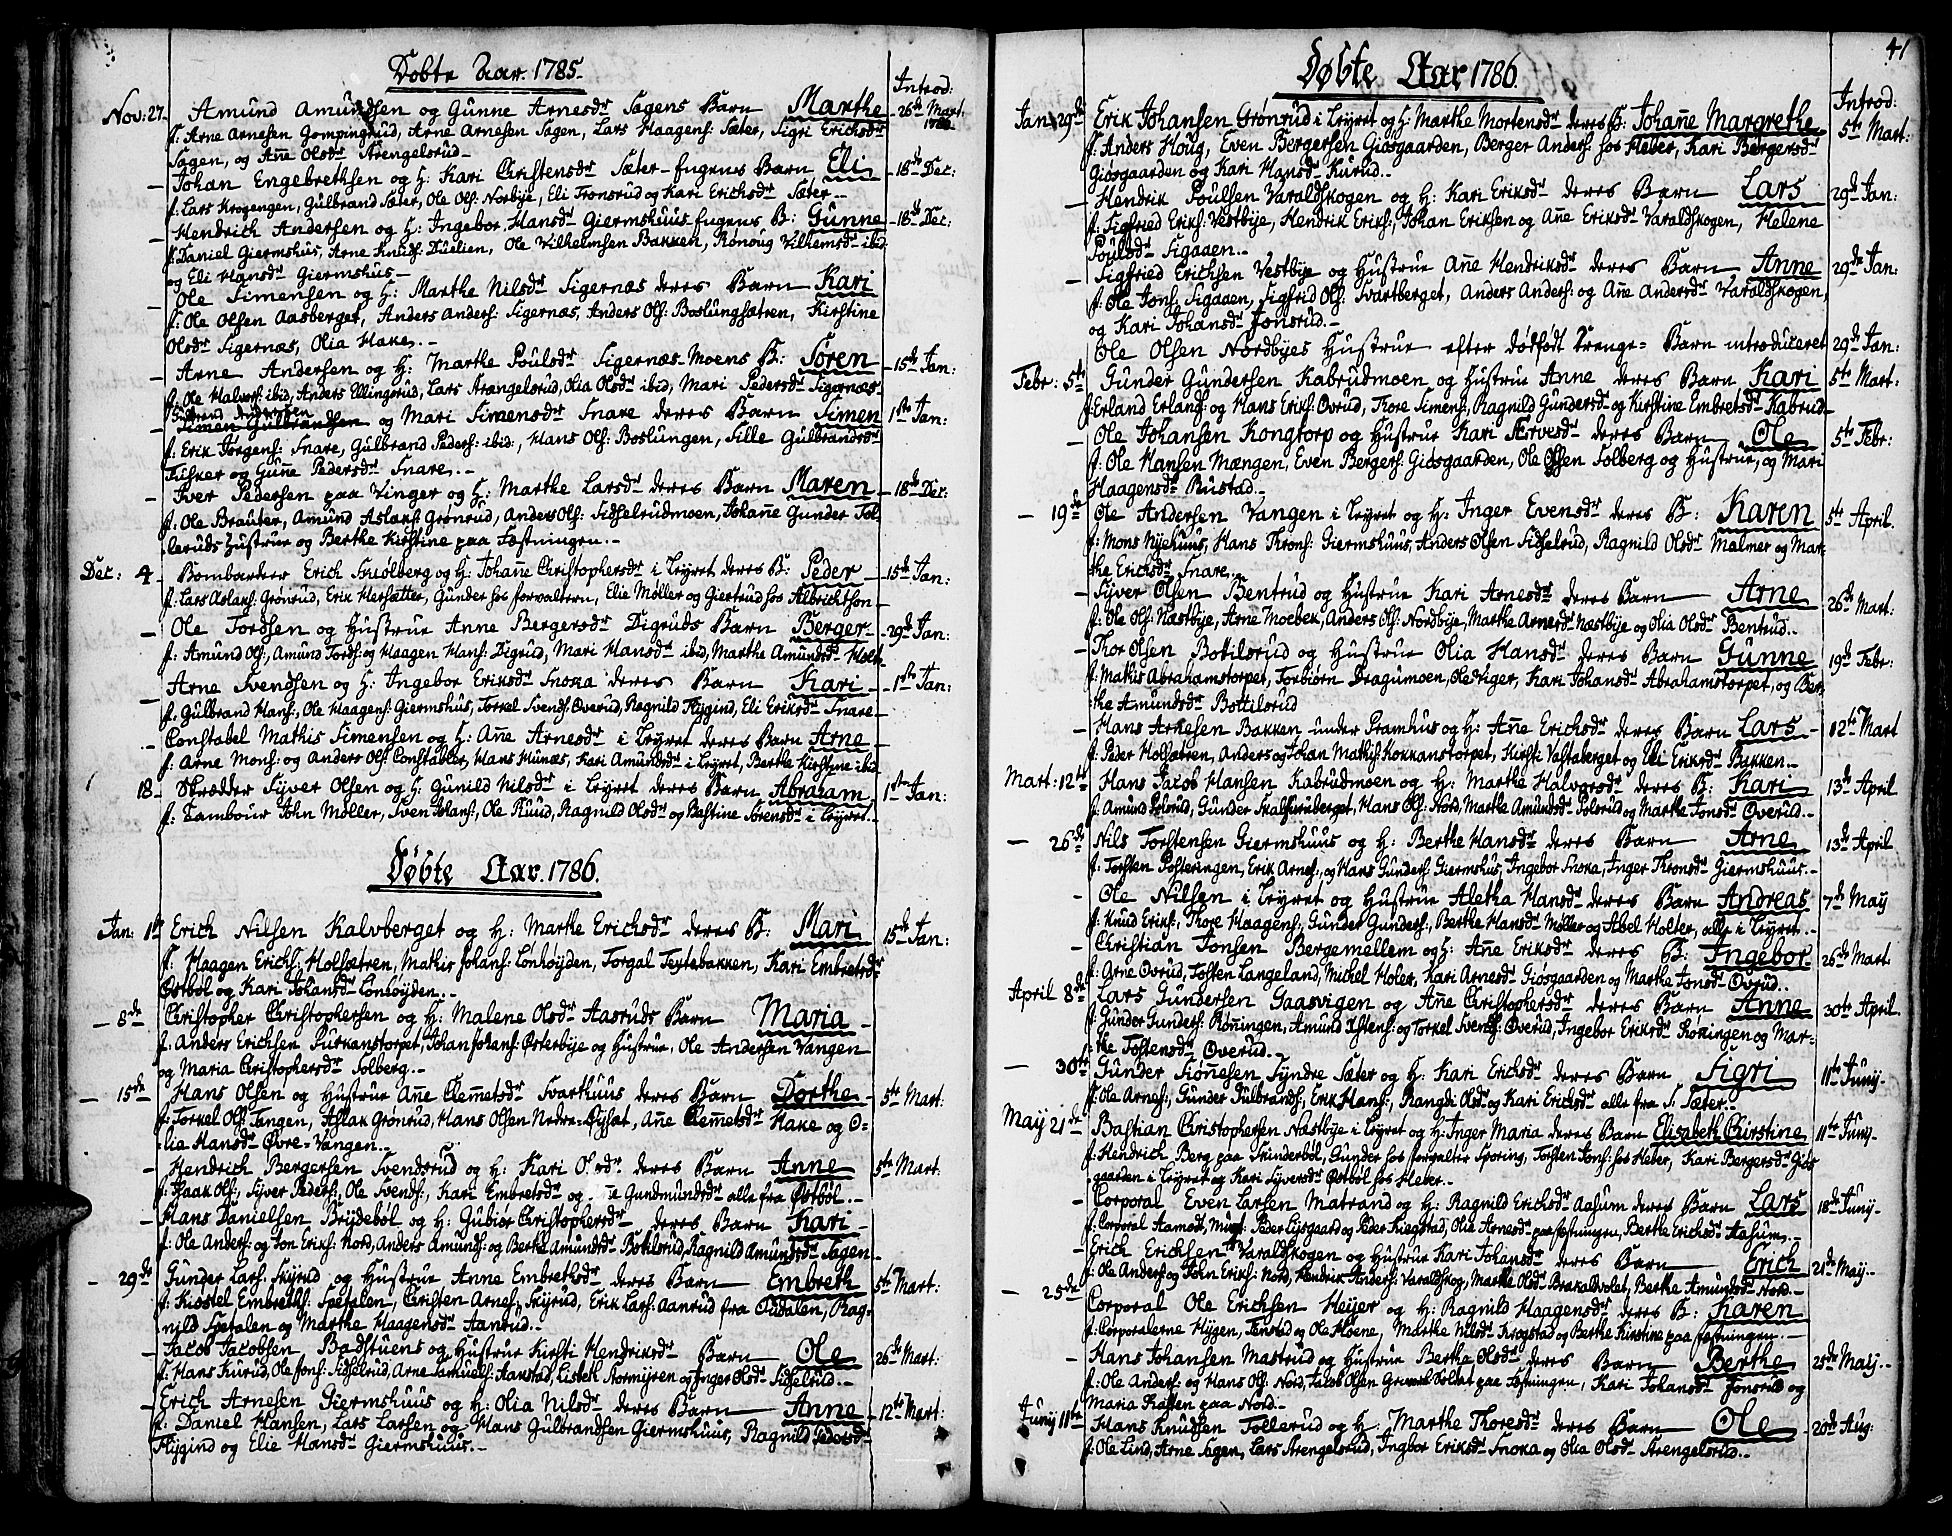 Døbte Aar. 1785.
Introd:
Nov: 27. Amund Amundsen og Gunne Arnesdr Sagens Barn Marthe 26de Mart: 1786.
f: Arne Arnesen Gompingrud, Arne Arnesen Sagen, Lars Haagens: Sæter, Sigri Erichsdr
Sagen, og Añe Olsdr Strengelsrud
Johan Engebrethsen og H: Kari Christensdr Sæter-Engens Barn Eli 18de Dec:
f: Lars Krogengen, Gulbrand Sæter, Ole Ols: Norbye, Eli Tronsrud og Kari Erichsdr Sæter
Hendrich Andersen og H: Ingebor Hansdr Giermshuus-Engens B: Gunne 18de Dec:
f: Daniel Giermshus, Arne Knuds: Duelien, Ole Vilhelmsen Bakken, Rønoug Vilhemsdr ibid
og Eli Hansdr Giermshus
Ole Simensen og H: Marthe Nilsdr Sigernæs deres Barn Kari
f: Ole Olsen Aasberget, Anders Anders: Sigernæs, Anders Ols: Boslungsætren, Kirstine
Olsdr Sigernæs, Olia Hake.
Arne Andersen og H: Marthe Poulsdr Sigernæs-Moens B: Søren 15de Jan:
f: Ole Halvors: ibid, Anders Ellingsrud, Lars Strengelsrud, Olia Olsdr ibid, Mari Pedersdr Sigernæs
Gulbrand Andersen
Simen Gulbrandsen og Mari Simensdr Snare deres Barn Simen 1ste Jan:
f: Erik Jørgens: Snare, Gulbrand Peders: ibid:, Hans Ols: Boslungen, Sille Gulbrandsdr
Fisker og Guñe Pedersdr Snare.
Iver Pedersen paa Vinger og H: Marthe Larsdr deres Barn Maren 18de Dec:
f: Ole Brauter, Amund Aslaks: Grønrud, Anders Ols: Sidselrudmoen, Johañe Gunder Tol-
leruds Hustrue og Berthe Kirstine paa Fæstningen.
Dec: 4. Bombardeer Erich Snolberg og H: Johañe Christophersdr i Leyret deres B: Peder 15de Jan:
f: Lars Aslaks: Grønrud, Erik Hersætter, Gunder hos forvaltern, Elie Møller og Giertrud hos Albrichtson
Ole Tordsen og Hustrue Anne Bergersdr Digruds Barn Berger 29de Jan:
f: Amund Ols:, Amund Tords: og Haagen Hans: Digrud, Mari Hansdr ibid, Marthe Amundsdr Holt
Arne Svendsen og H: Ingebor Eriksdr Snoka deres Barn Kari 1ste Jan:
f: Gulbrand Hans:, Ole Haagens: Giermshus, Torkel Svends: Overud, Ragnild Flygind, Eli Eriksdr Snare
Constabel Mathis Simensen og H: Añe Arnesdr i Leyret deres Barn Arne
f: Arne Mons: og Anders Ols: Constabler, Hans Hunæs, Kari Amundsdr i Leyret, Berthe Kirstine ibid
18. Skrædder Syver Olsen og H: Gunild Nilsdr i Leyret deres Barn Abraham 1ste Jan:
f: Tambour John Møller, Sven Johans:, Ole Ruud, Ragnild Olsdr og Bastine Sørensdr i Leyret.
Døbte Aar. 1786.
Jan: 1ste Erich Nilsen Kalvberget og H: Marthe Erichsdr deres B: Mari 15de Jan:
f: Haagen Erichs: Holsætren, Mathis Johans: Lonhøyden, Torgal Teytebakken, Kari Embretsdr
Østbøl og Kari Johansdr Lonhøyden.
8de Christopher Christophersen og H: Malene Olsdr Aasruds Barn Maria
f: Anders Erichsen Purkanstorpet, Johan Johans: Østerbye og Hustrue, Ole Andersen Vangen
og Maria Christophersdr Solberg.
15de Hans Olsen og Hustrue Añe Clemmetsdr Svarthuus deres Barn Dorthe 5te Mart:
f: Torkel Ols: Tangen, Aslak Grønrud, Hans Olsen Nedre-Rysset, Añe Clemmetsdr Hake og O-
lia Hansdr Øvre-Vangen.
Hendrich Bergersen Svendsrud og H: Kari Olsdr deres Barn Anne 5te Mart:
f: Isaak Ols:, Syver Peders:, Ole Svends:, Kari Embretsdr og Gundmundsdr alle fra Østbøl.
Hans Danielsen Brydebøl og H: Gubiør Christophersdr deres Barn Kari
f: Ole Anders: og Jon Eriks: Nord, Anders Amunds: og Berthe Amundsdr Botilsrud, Ragnild Amundsdr Sagen
29de Gunder Lars: Skyrud og Hustrue Anne Embrethsdr deres Barn Embreth 5te Mart:
f: Kiøstel Embreths: Spetalen, Christen Arnes: Skyrud, Erik Lars: Aanrud fra Oudalen, Rag-
nild Spetalen og Marthe Haagensdr Aanrud.
Jacob Jacobsen, Badstuens og Hustrue Kirsti Hendriksdr Barn Ole 26de Mart:
f: Hans Kurud, Ole Jons: Sidselrud, Arne Samuels: Haanstad, Lisbeth Stormyren og Inger Olsdr Sidselrud.
Erich Arnesen Giermshuus og H: Olia Nilsdr deres Barn Anne 12te Mart:
f: Daniel Hansen, Lars Larsen og Hans Gulbrandsen Giermshuus, Ragnild Pedersdr
Flygind og Elie Hansdr Giermshuus.
41
Døbte Aar 1786.
Introd:
Jan: 29de Erik Johansen Grønrud i Leyret og H: Marthe Mortensdr deres B: Johañe Margrethe 5te Mart:
f: Anders Houg, Even Bergersen Giøsgaarden, Berger Anders: hos Heber, Kari Bergersdr
Giøsgaarden og Kari Hansdr Kurud.
Hendrik Poulsen Varaldskogen og H: Kari Eriksdr deres Barn Lars 29de Jan:
f: Sigfried Eriks: Vestbye, Hendrik Eriks:, Johan Eriksen og Añe Eriksdr Varaldskogen, Helene
Poulsdr Sigaaen.
Sigfried Erichsen Vestbye og Hustrue Añe Hendriksdr deres Barn Anne 29de Jan:
f: Ole Jons: Sigaaen, Sigfrid Ols: Svartberget, Anders Anders: og Añe Andersdr Varaldskogen,
og Kari Johansdr Jonsrud.
Ole Olsen Nordbyes Hustrue efter dødfødt Drenge-Barn introduceret 29de Jan:
Febr: 5te Gunder Gundersen Kabrudmoen og Hustrue Anne deres Barn Kari 5te Mart:
f: Erland Erlands: og Hans Eriks: Overud, Thore Simens:, Ragnild Gundersdr og Kirstine Embretsdr Kabrud
Ole Johansen Kongtorp og Hustrue Kari Torvesdr deres Barn Ole 5te Febr:
f: Ole Hansen Mængen, Even Bergers: Giøsgaarden, Ole Olsen Solberg og Hustrue, og Mari
Haagensdr Rustad.
19de Ole Andersen Vangen i Leyret og H: Inger Evensdr deres B: Karen 5te April
f: Mons Nyehuus, Hans Throns: Giermshuus, Anders Olsen Sidselrud, Ragnild Olsdr Malmer og Mar-
the Erichsdr Snare.
Syver Olsen Bentrud og Hustrue Kari Arnesdr deres Barn Arne 26de Mart:
f: Ole Ols: Næstbye, Arne Moebek, Anders Ols: Nordbye, Marthe Arnesdr Næstbye og Olia Olsdr Bentrud.
Thor Olsen Botilsrud og Hustrue Olia Hansdr deres Barn Gunne 19de Febr:
f: Mathis Abrahamstorpet, Torbiørn Dragumoen, Ole Viger, Kari Johansdr Abrahamstorpet, og Ber-
the Amundsdr Bottilsrud
Hans Arnesen Bakken under Framhus og H: Añe Erichsdr deres Barn Lars 12te Mart
f: Peder Holsætren, Anders og Johan Mathis: Kokkanstorpet, Kirsti Valtaberget og Eli Eriksdr Bakken.
Mart: 12te Hans Jacob Hansen Kabrudmoen og H: Marthe Halvorsdr deres B: Kari 13de April
f: Amund Polsrud, Gunder Skalfuruberget, Hans Ols: Nord, Marthe Amundsdr Polsrud og Marthe Jonsdr Overud.
26de Nils Torstensen Giermshuus og H: Berthe Hansdr deres Barn Arne 13de April
f: Torsten Posteringen, Erik Arnes:, og Hans Gunders: Giermshus, Ingebor Snoka, Inger Thronsdr Giermshuus.
Ole Nilsen i Leyret og Hustrue Aletha Hansdr deres Barn Andreas 7de May
f: Knud Eriks:, Thore Haagens:, Gunder Gunders:, Berthe Hansdr Møller og Abel Holter, alle i Leyret.
Christian Jonsen Bergemellem og H: Añe Eriksdr deres B: Ingebor 26de Mart:
f: Arne Overud, Tosten Langeland, Michel Holer, Kari Arnesdr Giøsgaarden og Marthe Jonsdr Overud.
April 8de Lars Gundersen Gaasvigen og Añe Christophersdr deres Barn Anne 30te April
f: Gunder Gunders: Rønningen, Amund Estens: og Torkel Svends: Overud, Ingebor Eriksdr Rotningen og Mar-
the Tostensdr Overud.
30te Gunder Siønnesen Syndre Sæter og H: Kari Erichsdr deres Barn Sigri 11te Juny
f: Ole Arnes:, Gunder Gulbrands:, Erik Hans:, Rangdi Olsdr og Kari Erichsdr alle fra S: Sæter.
May 21de Bastian Christophersen Næstbye i Leyret og H: Inger Maria deres Barn Elisabeth Christine 11te Juny
f: Hendrich Berg paa Skinderbøl, Gunder hos forvalter Sporing, Torsten Jons: hos Heber, Kari Bergersdr Giøs-
gaarden i Leyret og Kari Syversdr Østbøl hos Heber.
Corporal Even Larsen Matrand og H: Ragnild Erichsdr Aasum deres Barn Lars 18de Juny
f: Corporal Aamodt, Peder Lysgaard og Peder Kiegstad, Olia Arnesdr paa fæstningen, Berthe Erichsdr Aasum.
Erich Erichsen Varaldskogen og Hustrue Kari Johansdr deres Barn Erich 21de May
f: Ole Anders: og John Eriks: Nord, Hendrik Anders: Varaldskog, Marthe Olsdr Brakalvolet, Berthe Amundsdr Nord.
25de Corporal Ole Erichsen Heyer og H: Ragnild Haagensdr deres B: Karen
f: Corporalerne Hygen, Tenstad og Ole Høene, Marthe Nilsdr Krogstad og Berthe Kirstine paa fæstningen.
Hans Johansen Mastrud og Hustrue Berthe Olsdr deres Barn Berthe 25de May
f: Ole Anders: og Hans Ols: Nord, Jacob Olsen Soldat paa Fæstningen, Kari Johansdr Jonsrud og
Maria Kasten paa Nord.
Juny 11te Hans Knudsen Tollerud og H: Marthe Thoresdr deres Barn Ole 20de Aug:
f: Ole Lind, Arne Sagen, Lars Strengelsrud, Ingbor Eriksdr Snoka og Olia Olsdr Strengelsrud.